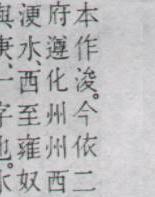 本作浚。今依二
府遵化州州西
浭水、西至雍奴
庚一字也。